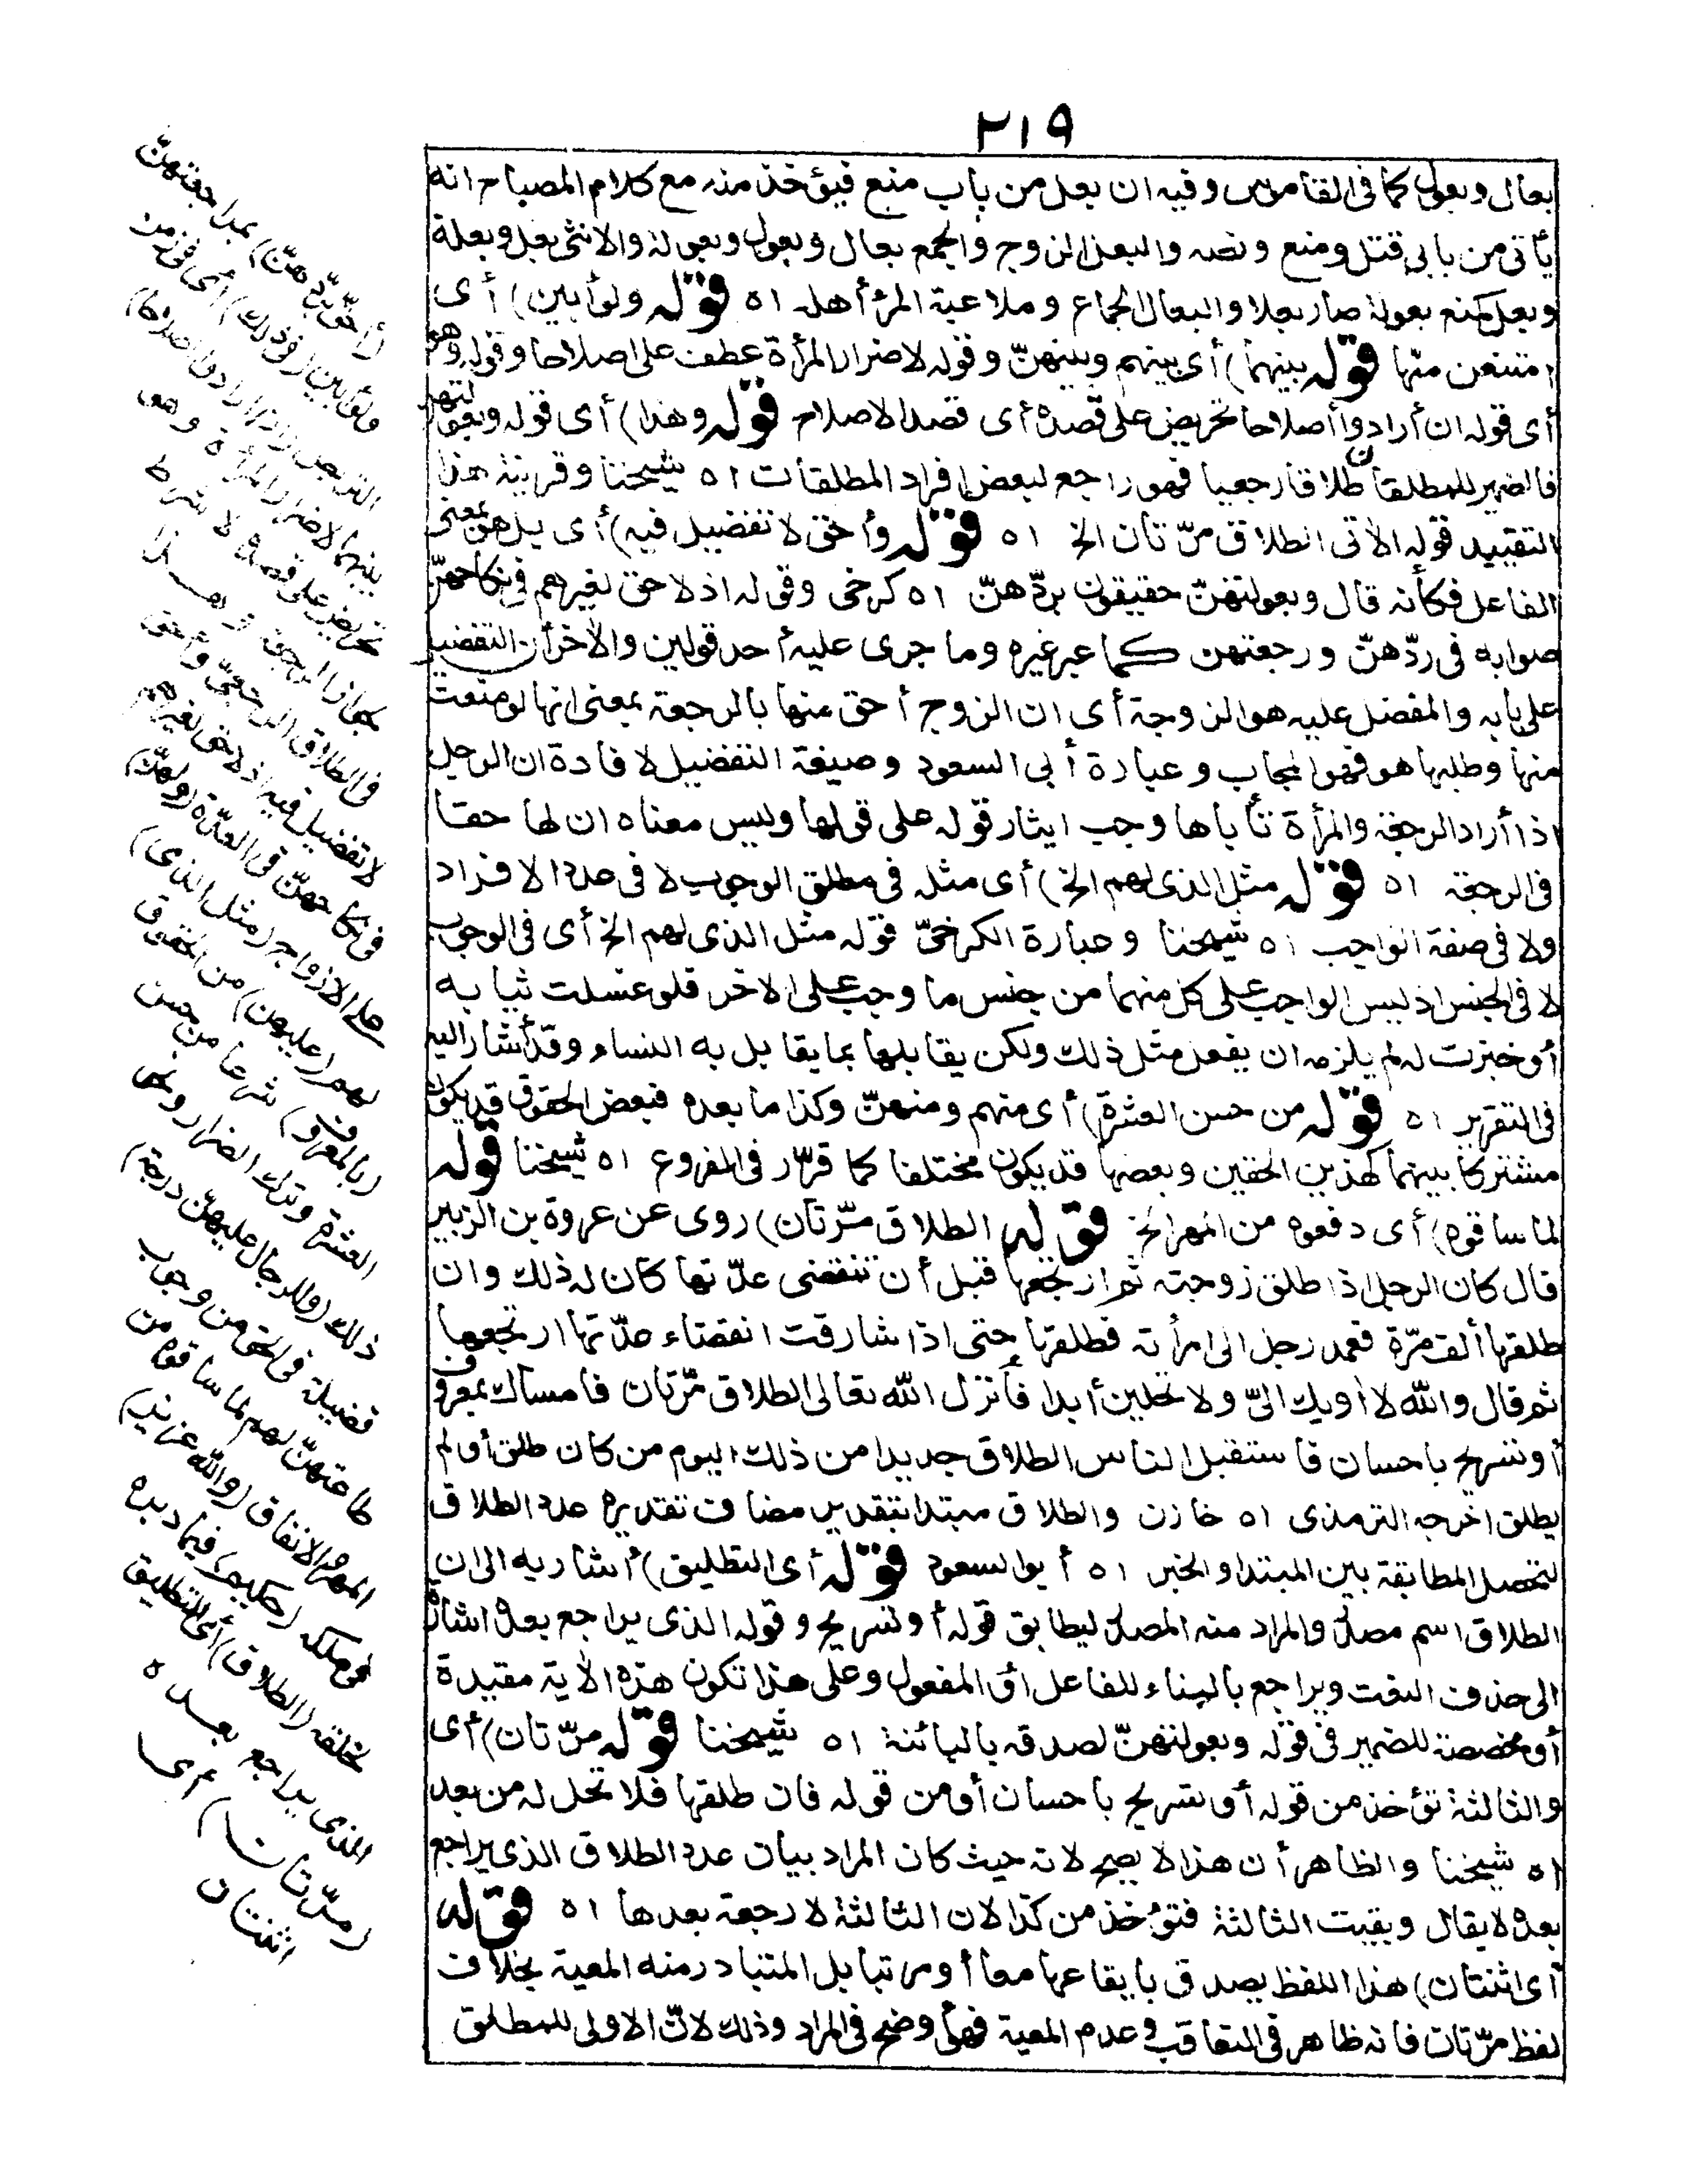 ٢١٩
بعال وبعول كما فى القاموس وفيه ان بعل من باب منع فيؤخذ منه مع كلام المصباح انه
يأتى من بابى قتل ومنع ونصه والبعل الزوج والجمع بعال وبعول وبعولة والانثى بعل وبعلة
وبعل كمنع بعولة صار بعلا والبعال الجماع وملاعبة المرء أهله اه قوله ولو أبين) أى
امتنعن منها قوله بينهما) أى بينهم وبينهنّ وقوله لاضرار المرأة عطف على اصلاحا وقوله وهو
أى قوله ان أرادوا أصلاحا تحريض على قصده أى قصد الاصلاح قوله وهذا) أى قوله وبعولتهن
فالضمير للمطلقات طلاقا رجعيا فهو راجع لبعض افراد المطلقات اه شيخنا وقرينة هذا
التقييد قوله الآتى الطلاق مرّتان الخ اه قوله وأحق لا تفضيل فيه) أى بل هو بمعنى
الفاعل فكأنه قال وبعولتهنّ حقيقون بردّهنّ اه كرخى وقوله اذ لا حق لغيرهم فى نكاحهنّ
صوابه فى ردّهنّ ورجعتهن كما عبر غيره وما جرى عليه أحد قولين والآخر أن التفضيل
على بابه والمفضل عليه هو الزوجة أى ان الزوج أحق منها بالرجعة بمعنى انها لو منعت
منها وطلبها هو فهو المجاب وعبارة أبى السعود وصيغة التفضيل لافادة ان الرجل
اذا أراد الرجعة والمرأة تأباها وجب ايثار قوله على قولها وليس معناه ان لها حقا
فى الرجعة اه قوله مثل الذى لهم الخ) أى مثله فى مطلق الوجوب لا فى عدد الافراد
ولا فى صفة الواجب اه شيخنا وعبارة الكرخىّ قوله مثل الذى لهم الخ أى فى الوجوب
لا فى الجنس اذ ليس الواجب على كل منهما من جنس ما وجب على الآخر فلو غسلت ثيابه
أو خبزت له لم يلزمه ان يفعل مثل ذلك ولكن يقابلها بما يقابل به النساء وقد أشار اليه
فى التقرير اه قوله من حسن العشرة) أى منهم ومنهنّ وكذا ما بعده فبعض الحقوق قد يكون
مشتركا بينهما كهذين الحقين وبعضها قد يكون مختلفا كما قرّر فى الفروع اه شيخنا قوله
لما ساقوه) أى دفعوه من المهر الخ قوله الطلاق مرّتان) روى عن عروة بن الزبير
قال كان الرجل اذا طلق زوجته ثم ارتجعها قبل أن تنقضى عدّتها كان له ذلك وان
طلقها ألف مرّة فعمد رجل الى امرأته فطلقها حتى اذا شارفت انقضاء عدّتها ارتجعها
ثم قال والله لا أويك الىّ ولا تحلين أبدا فأنزل الله تعالى الطلاق مرّتان فامساك بمعروف
أو تسريح باحسان فاستقبل الناس الطلاق جديدا من ذلك اليوم من كان طلق أو لم
يطلق اخرجه الترمذى اه خازن والطلاق مبتدا بتقدير مضاف تقديره عدد الطلاق
لتحصل المطابقة بين المبتدا والخبر اه أبو السعود قوله أى التطليق) أشار به الى ان
الطلاق اسم مصدر والمراد منه المصدر ليطابق قوله أو تسريح وقوله الذى يراجع بعده اشارة
الى حذف النعت ويراجع بالبناء للفاعل أو المفعول وعلى هذا تكون هذه الآية مقيدة
أو مخصصة للضمير فى قوله وبعولتهنّ لصدقه بالبائنة اه شيخنا قوله مرّتان) أى
والثالثة تؤخذ من قوله أو تسريح باحسان أو من قوله فان طلقها فلا تحل له من بعد
اه شيخنا والظاهر أن هذا لا يصح لانه حيث كان المراد بيان عدد الطلاق الذى يراجع
بعده لا يقال وبقيت الثالثة فتؤخذ من كذا لان الثالثة لا رجعة بعدها اه قوله
أى اثنتان) هذا اللفظ يصدق بايقاعها معا أو مرتبا بل المتبادر منه المعية بخلاف
لفظ مرّتان فانه ظاهر فى التعاقب وعدم المعية فهو أوضح فى المراد وذلك لانّ الاولى للمطلق
(أحق بردّهنّ) بمراجعتهنّ
ولو أبين (فى ذلك) أى فى زمن
التربص (ان أرادوا اصلاحا)
بينهما لاضرار المرأة وهو
تحريض على قصده لا شرط
لجواز الرجعة وهذا
فى الطلاق الرجعىّ وأحق
لا تفضيل فيه اذ لا حق لغيرهم
فى نكاحهنّ فى العدّة (ولهنّ)
على الازواج (مثل الذى)
لهم (عليهن) من الحقوق
(بالمعروف) شرعا من حسن
العشرة وترك الضرار ونحو
ذلك (وللرجال عليهنّ درجة)
فضيلة فى الحق من وجوب
طاعتهنّ لهم لما ساقوه من
المهر والانفاق (والله عزيز)
فى ملكه (حكيم) فيما دبره
لخلقه (الطلاق) أى التطليق
الذى يراجع بعده
(مرّتان) أى
اثنتان